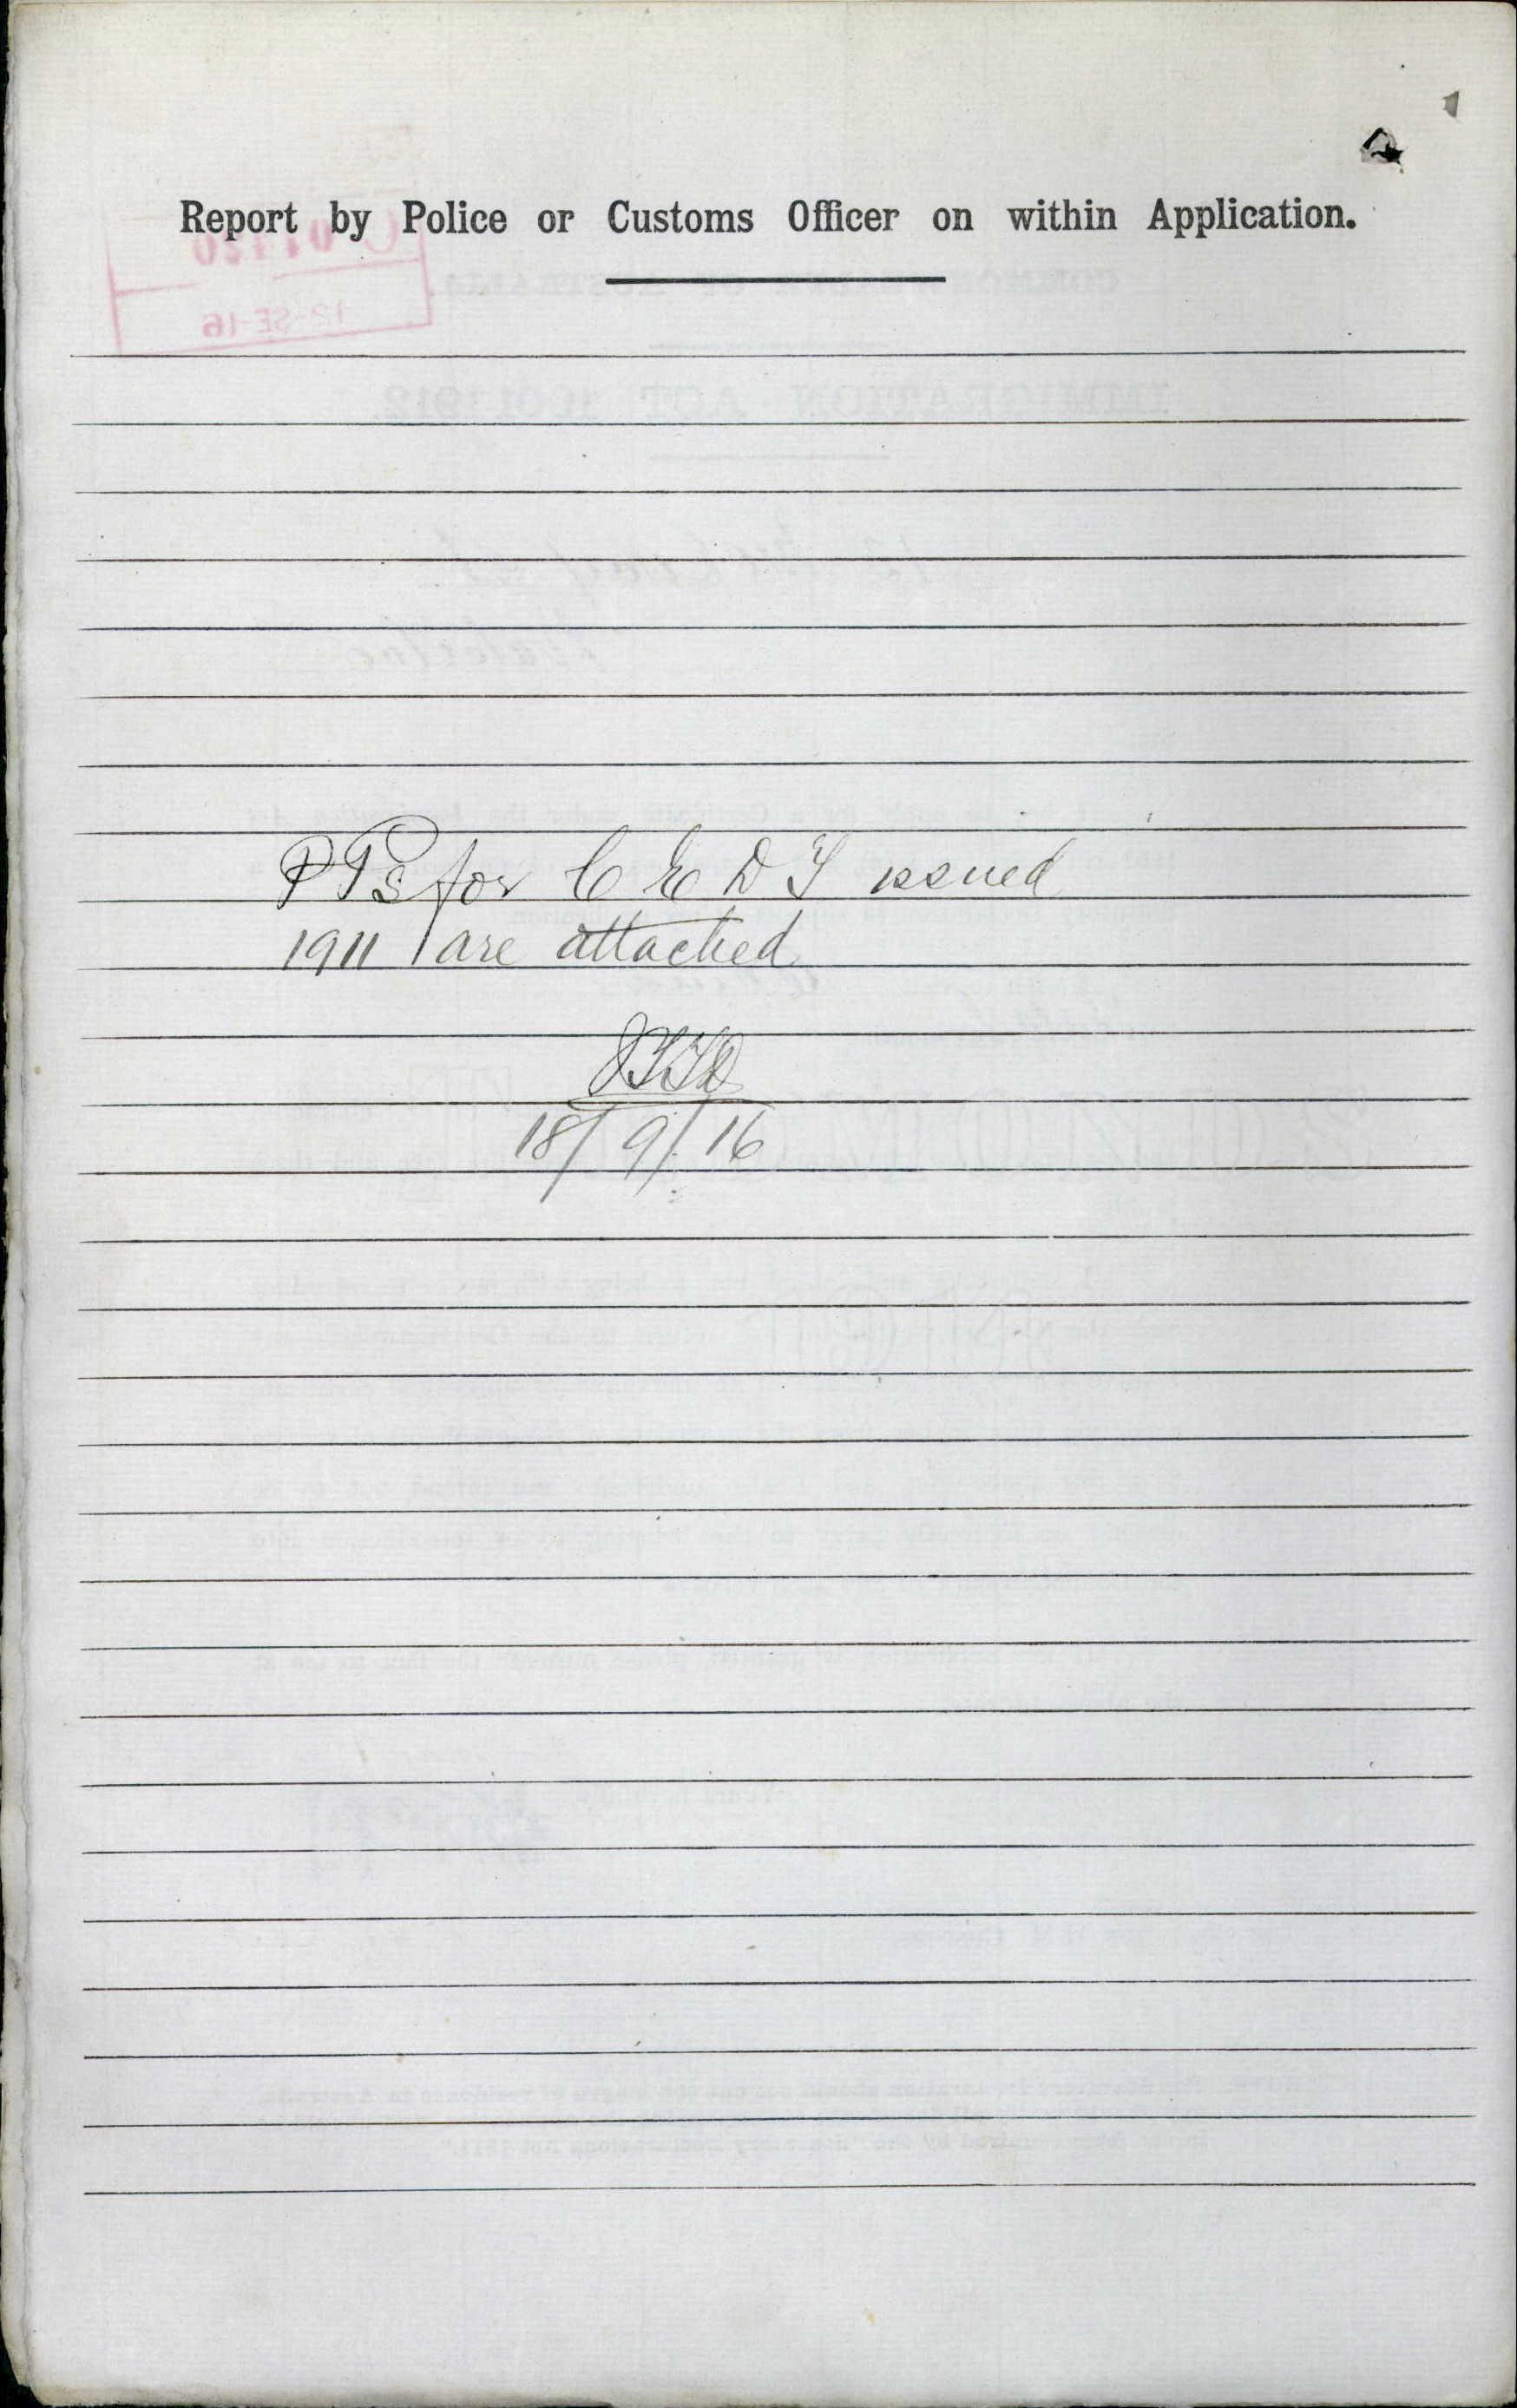 Report by Police or Customs Officer on within Application.
PPs for C E D T issued
1911 are attached
18/9/16